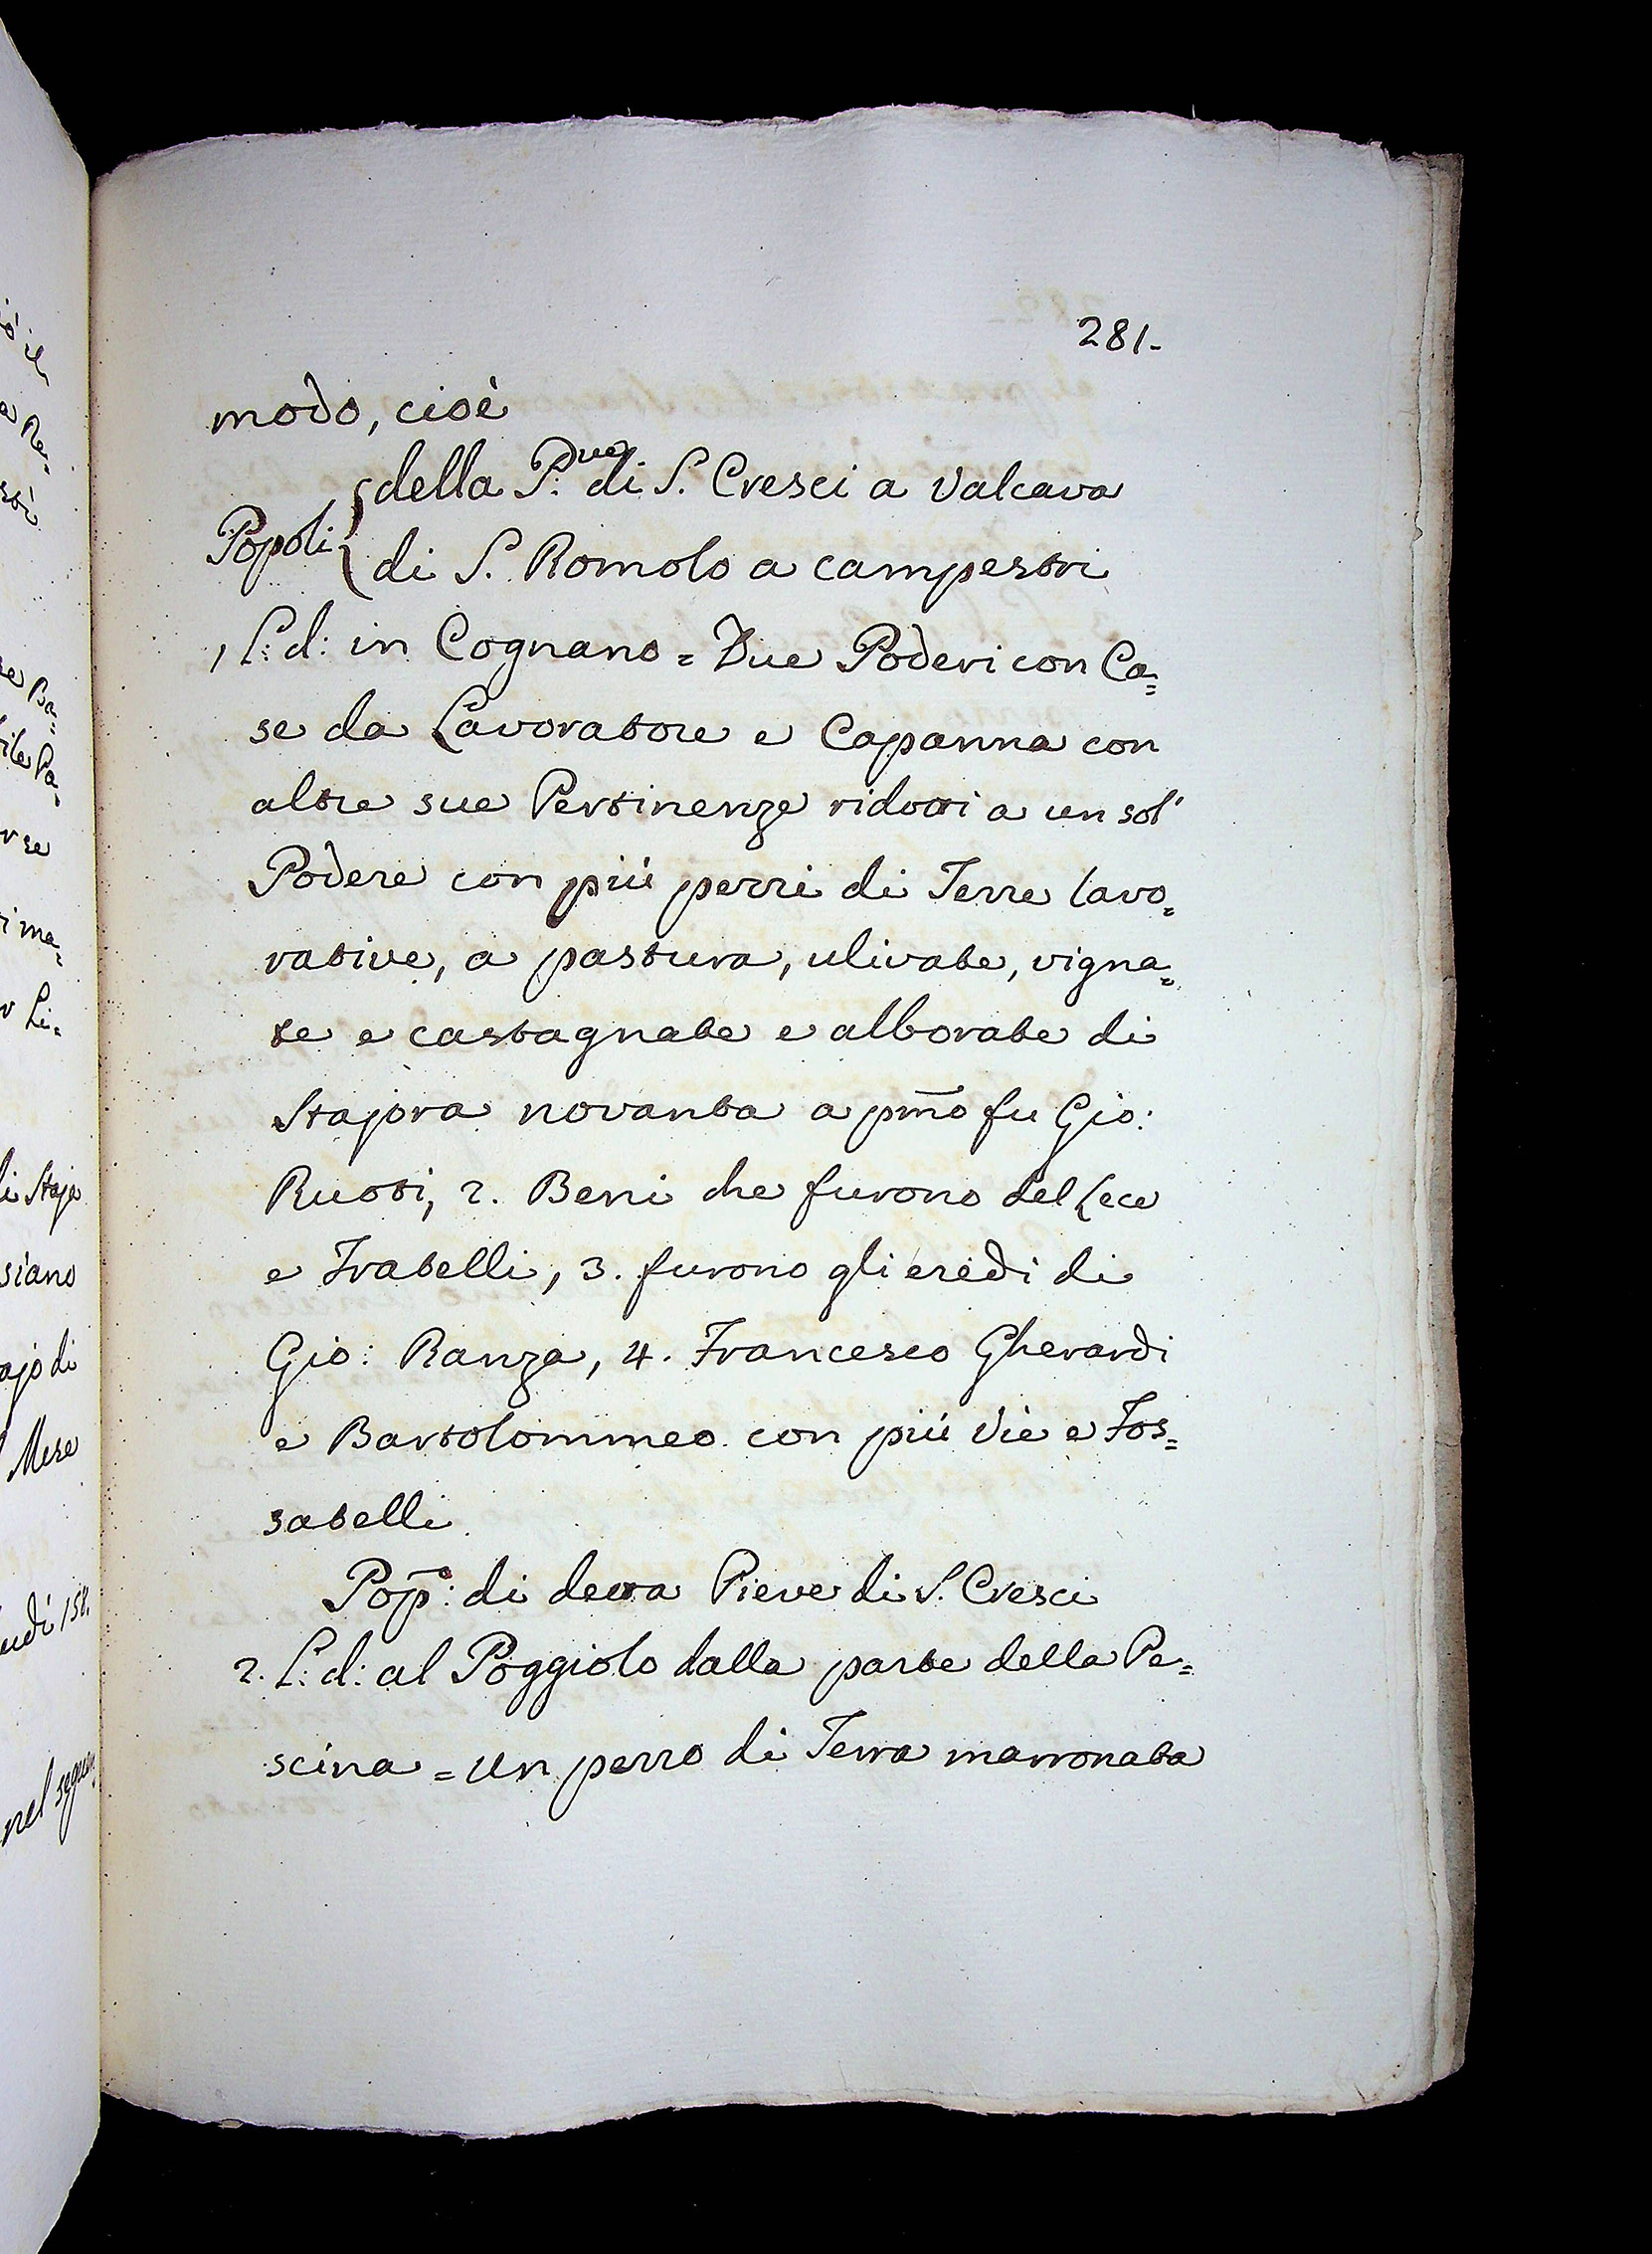 281-
modo, cioè
della P.ve di S. Cresci a Valcava
Popoli
di S. Romolo a Campestri
1 L: d: in Cognano = Due Poderi con Ca=
se da Lavoratore e Capanna con
altre sue Pertinenze ridotti a un sol'
Podere con più pezzi di Terre lavo=
rative, a pastura, ulivate, vigna=
te e castagnate e alborate di
Stajora novanta a pmo fu Gio:
Ruoti, 2. Beni che furono del Lece
e Fratelli, 3. furono gli eredi di
Gio: Ranza, 4. Francesco Gherardi
e Bartolommeo con più Vie e Fos=
satelli
Popo: di detta Pieve di S. Cresci
2. L: d: al Poggiolo dalla parte della Pe=
scina = Un pezzo di Terra marronata
siano
ajo di
Mese